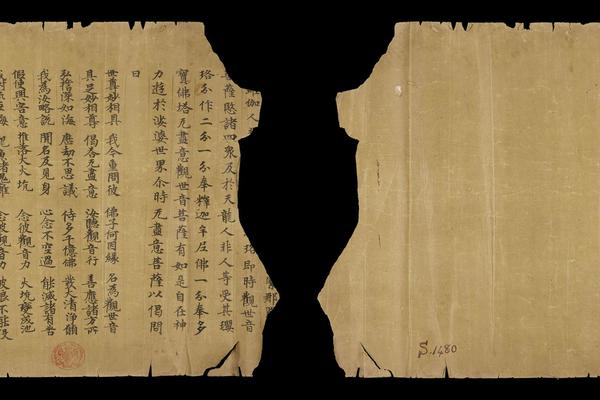 即時觀世音
菩薩愍諸四衆及於天龍人非人等受其瓔
珞分作二分一分奉釋迦牟尼佛一分奉多
寶佛塔无盡意觀世音菩薩有如是自在神
力遊於娑婆世界尒時无盡意菩薩以偈問
曰
世尊妙相具 我今重問彼 佛子何因緣 名為觀世音
具足妙相尊 偈荅无盡意 汝聽觀音行 善應諸方所
弘誓深如海 歷劫不思議 侍多千億佛 發大清淨願
我為汝略說 聞名及見身 心念不空過 能滅諸有苦
假使興害意 推落大火坑 念彼觀音力 火坑變成池
念彼觀音力 波浪不能没
S.1480